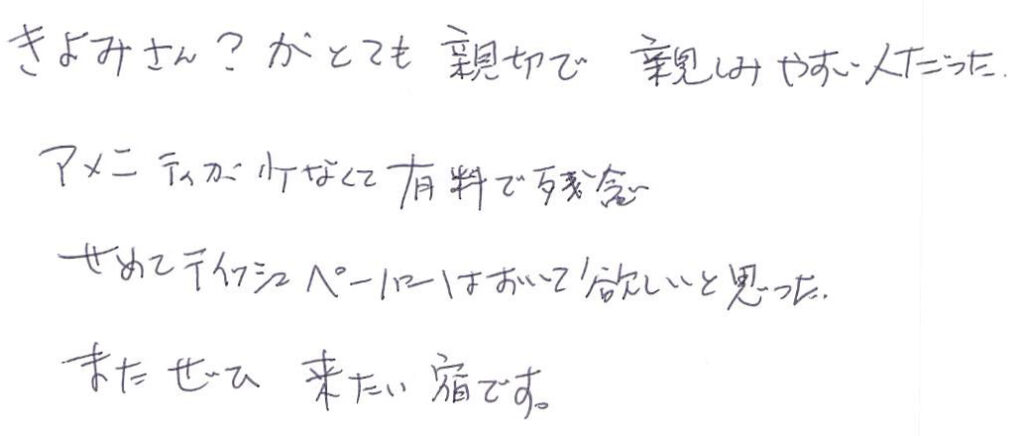 きよみさん?がとても 親切で 親しみやすい人だった.
アメニティが少なくて有料で残念
せめてティッシュペーパーはおいて欲しいと思った.
またぜひ 来たい宿です。